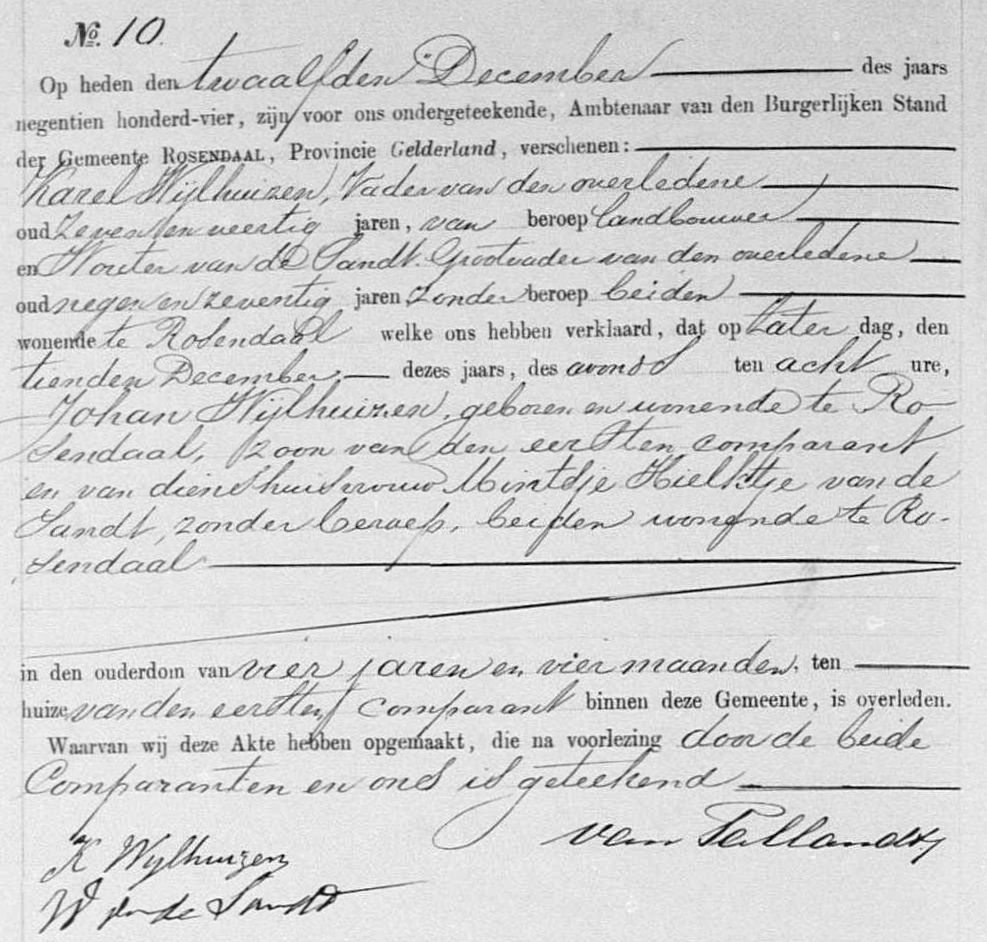 No. 10.
Op heden den twaalfden December des jaars
negentien honderd-vier, zijn voor ons ondergeteekende, Ambtenaar van den Burgerlijken Stand
der Gemeente ROSENDAAL, Provincie Gelderland, verschenen:
Karel Wijlhuizen, Vader van den overledene
oud Zeven en veertig jaren, van beroep landbouwer
en Wouter van de Sandt. Grootvader van den overledene
oud negen en zeventig jaren, zonder beroep beiden
wonende te Rosendaal welke ons hebben verklaard, dat op later dag, den
tienden December, dezes jaars, des avonds ten acht ure,
Johan Wijlhuizen, geboren en wonende te Ro-
sendaal, zoon van den eersten comparant
en van diens huisvrouw Mintsje Hielktje van de
Sandt, zonder beroep, beiden wonende te Ro-
sendaal
in den ouderdom van vier jaren en vier maanden, ten
huize van den eersten comparant binnen deze Gemeente, is overleden.
Waarvan wij deze Akte hebben opgemaakt, die na voorlezing door de beide
Comparanten en ons is geteekend
van Pallandt,
K Wijlhuizen
W van de Sandt